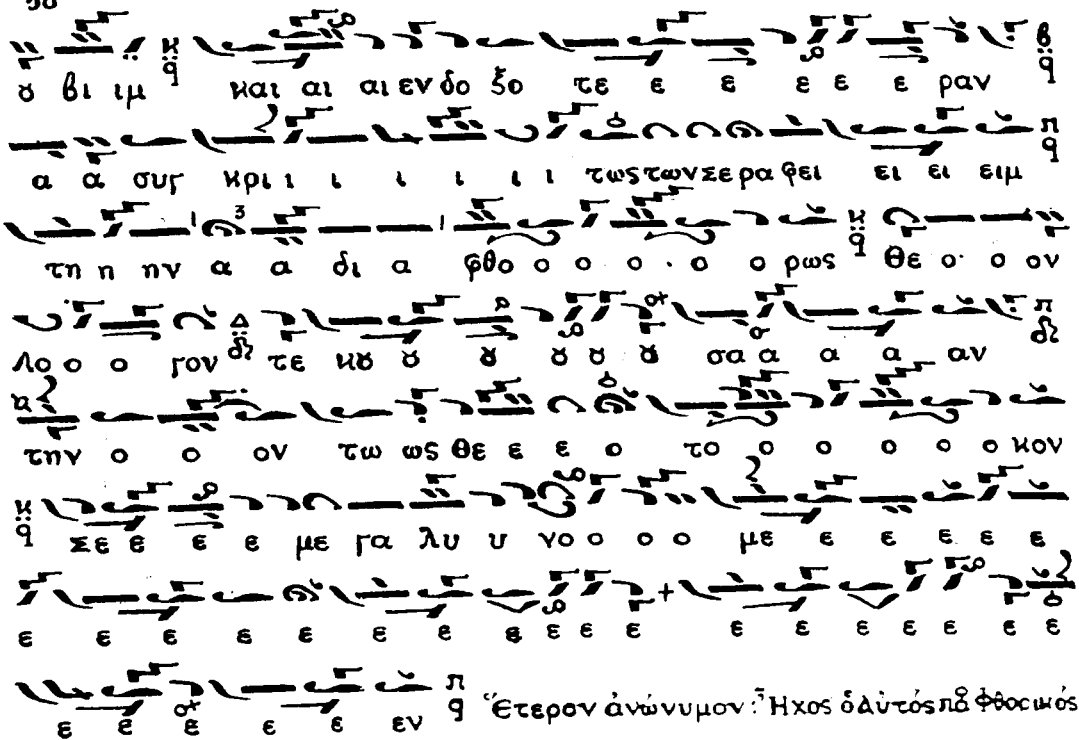 ȣ βι ιμ και αι αι εν δο ξο τε ε ε ε ε ε ραν
α α συγ κρι ι ι ι ι ι ι τως των Σε ρα φει ει ει ειμ
τη η ην α α δι α φθο ο ο ο ο ο ρως Θε ο ο ον
Λο ο ο γον τε κȣ ȣ ȣ ȣ ȣ ȣ σα α α α αν
την ο ο ον τω ως Θε ε ε ο το ο ο ο ο ο κον
Σε ε ε ε με γα λυ υ νο ο ο ο με ε ε ε ε ε
ε ε ε ε ε ε ε ε ε ε ε ε ε ε ε ε ε ε
ε ε ε ε ε εν Ἕτερον ἀνώνυμον: Ἦχος ὁ αὐτός πα φθορικός